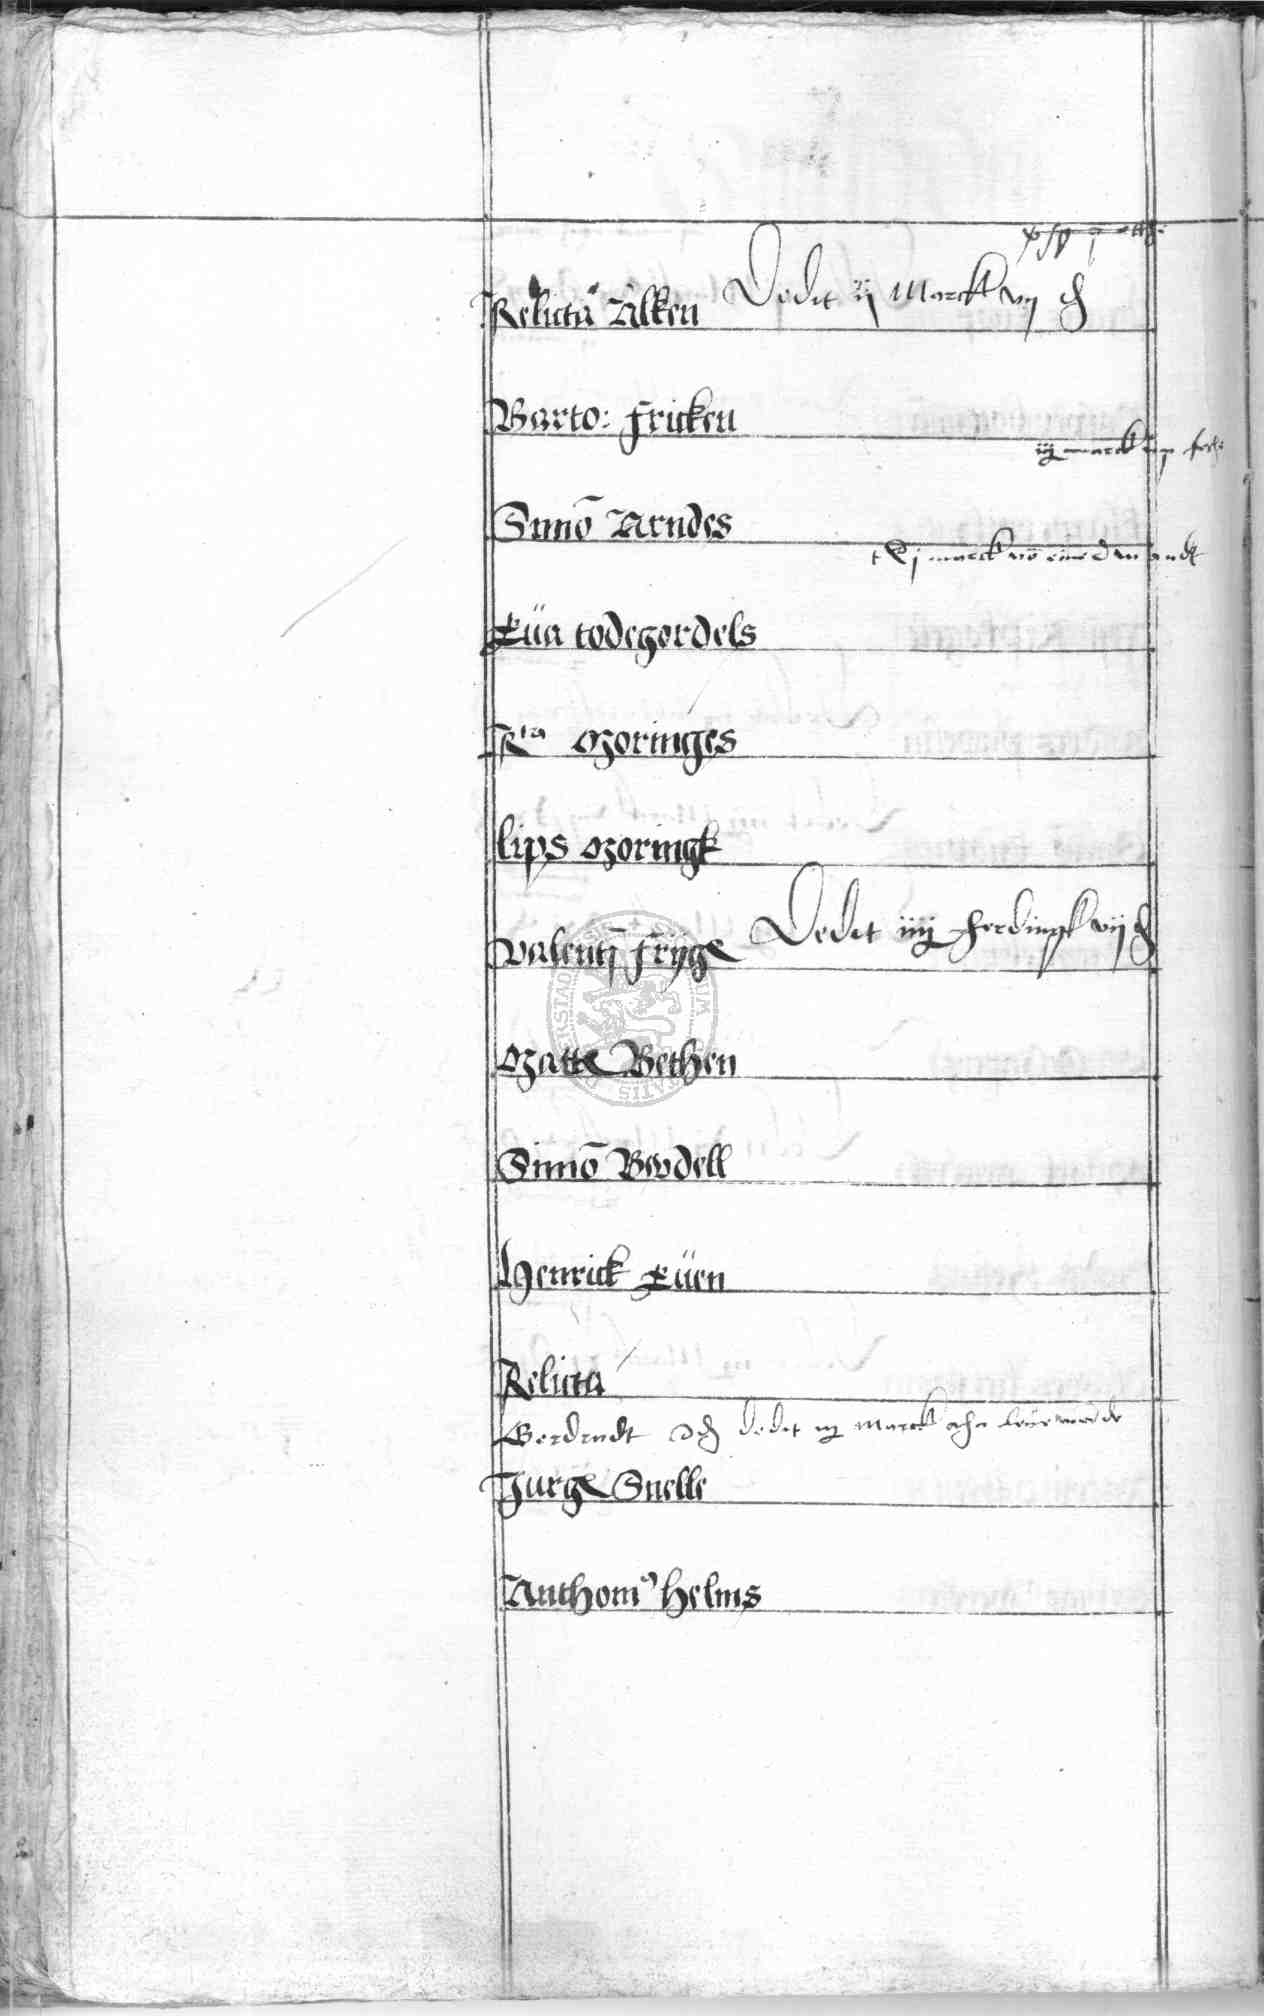 Relicta Alken Dedit ij Marck vij ₰
Barto: Fricken
iij marck
Simō Arndes
marck
Eüa todegordels
Rta Moringes
lips Moringk
Valentī Frÿge Dedit iiij Ferdingk vij ₰
Matte Bethen
Simō Bordell
Henrick Eüen
Relicta
Gerdrudt dedit iij Marck
Jurge Snelle
Anthoni9 Helms